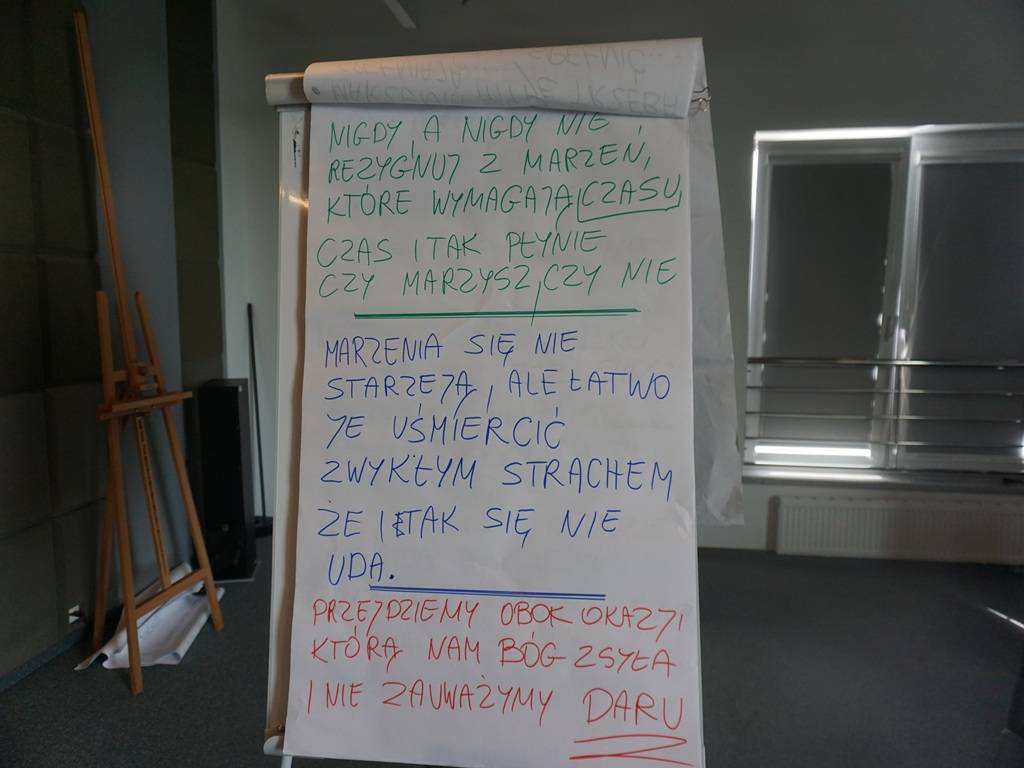 NIGDY, A NIGDY NIE
REZYGNUJ Z MARZEŃ,
KTÓRE WYMAGAJĄ CZASU,
CZAS I TAK PŁYNIE
CZY MARZYSZ, CZY NIE
MARZENIA SIĘ NIE
STARZEJĄ, ALE ŁATWO
JE UŚMIERCIĆ
ZWYKŁYM STRACHEM
ŻE I TAK SIĘ NIE
UDA.
PRZEJDZIEMY OBOK OKAZJI
KTÓRĄ NAM BÓG ZSYŁA
I NIE ZAUWAŻYMY DARU